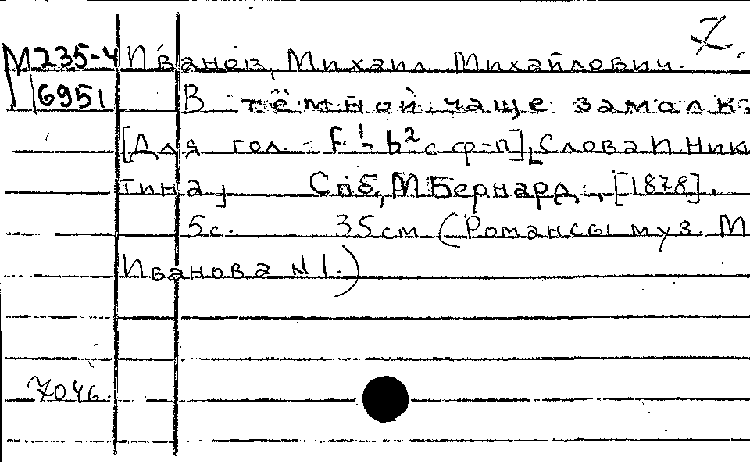 7.
М235-4 Иванов, Михаил Михайлович.
16951 В тёмной чаще замолк
[Для гол. f¹-b² с ф-п], Слова П. Ник
тина, Спб, М. Бернард, [1878].
5с. 35см (Романсы муз. М
Иванова №1.)
7046.